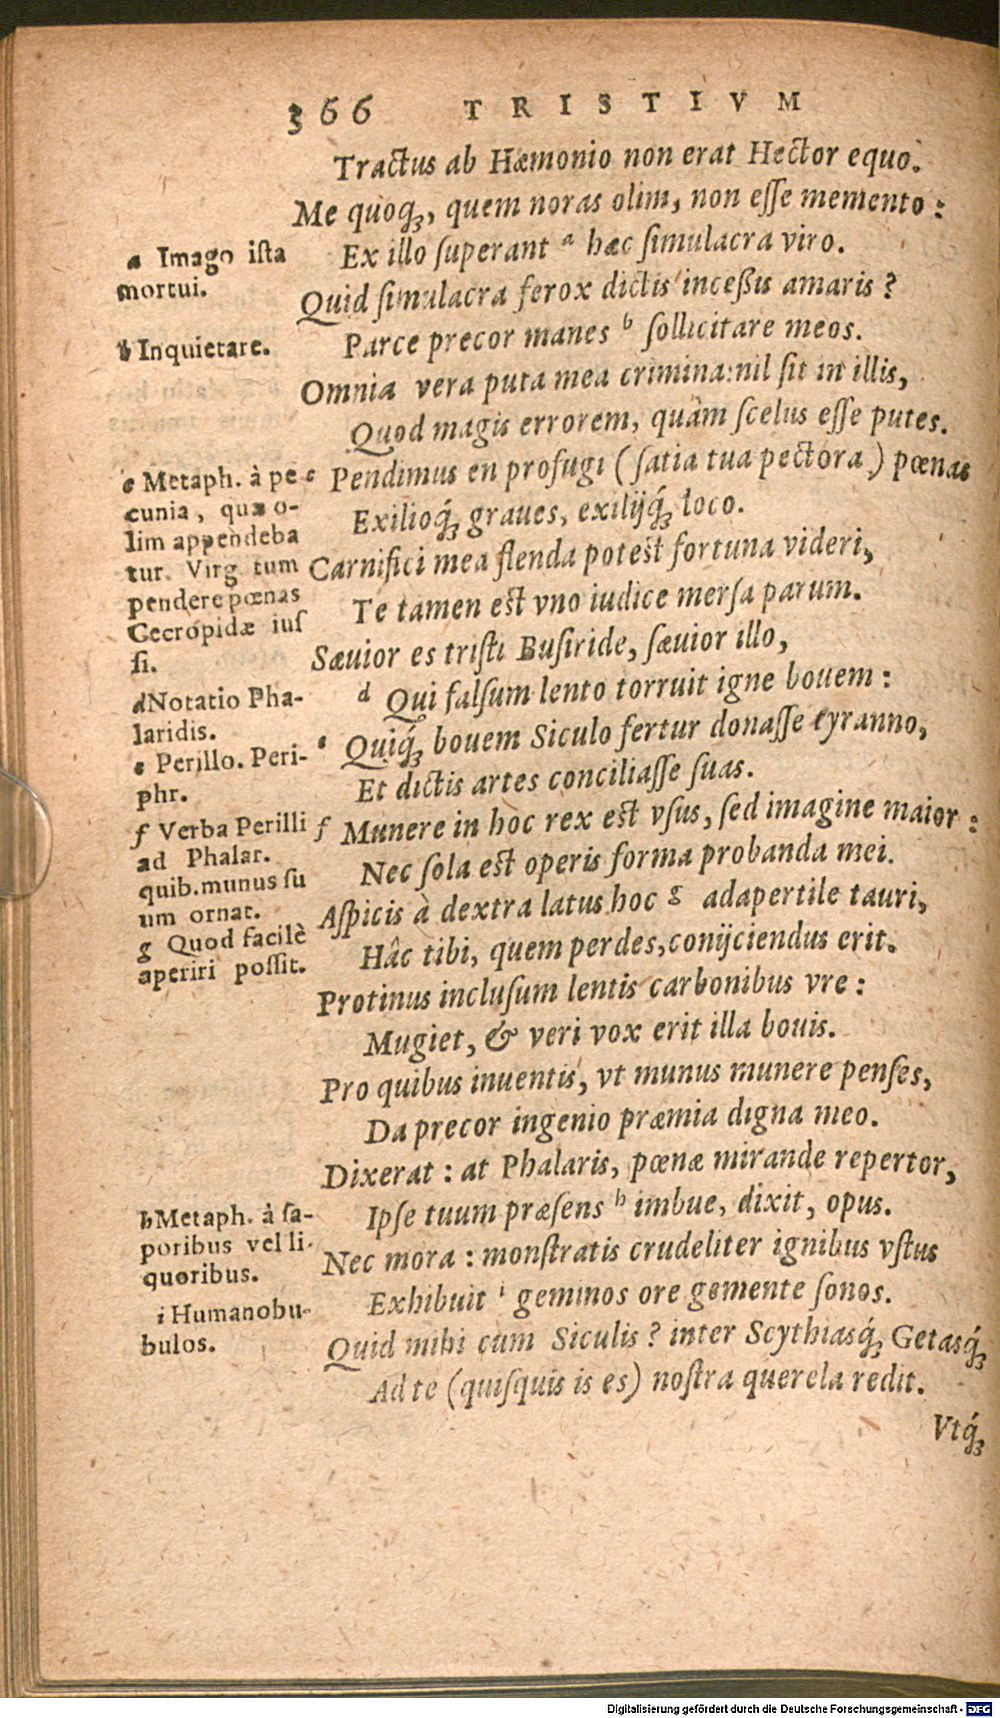 366 TRISTIVM
Tractus ab Hæmonio non erat Hector equo.
Me quoq́ꝫ, quem noras olim, non eſſe memento:
Ex illo ſuperant ᵃ hæc ſimulacra viro.
Quid ſimulacra ferox dictis inceßis amaris?
Parce precor manes ᵇ ſollicitare meos.
Omnia vera puta mea crimina: nil ſit in illis,
Quod magis errorem, quâm ſcelus eſſe putes.
c Pendimus en profugi (ſatia tua pectora) pœnas
Exilioq́ꝫ graues, exilijq́ꝫ loco.
Carnifici mea flenda potest fortuna videri,
Te tamen est vno iudice merſa parum.
Sæuior es tristi Buſiride, ſæuior illo,
ᵈ Qui falſum lento torruit igne bouem:
ᵉ Quiq́ꝫ bouem Siculo fertur donaſſe tyranno,
Et dictis artes conciliaſſe ſuas.
f Munere in hoc rex est vſus, ſed imagine maior:
Nec ſola est operis forma probanda mei.
Aſpicis à dextra latus hoc ᵍ adapertile tauri,
Hâc tibi, quem perdes, conijciendus erit.
Protinus incluſum lentis carbonibus vre:
Mugiet, & veri vox erit illa bouis.
Pro quibus inuentis, vt munus munere penſes,
Da precor ingenio præmia digna meo.
Dixerat: at Phalaris, pœnæ mirande repertor,
Ipſe tuum præſens ʰ imbue, dixit, opus.
Nec mora: monſtratis crudeliter ignibus vſtus
Exhibuit ⁱ geminos ore gemente ſonos.
Quid mihi cum Siculis? inter Scythiasq́ꝫ Getasq́ꝫ
Ad te (quiſquis is es) noſtra querela redit.
Vtq́ꝫ
a Imago iſta
mortui.
b Inquietare.
c Metaph. à pe
cunia, quæ o-
lim appendeba
tur. Virg tum
pendere pœnas
Cecropidæ iuſ
ſi.
d Notatio Pha-
laridis.
e Perillo. Peri-
phr.
f Verba Perilli
ad Phalar.
quib. munus ſu
um ornat.
g Quod facilè
aperiri poſſit.
h Metaph. à ſa-
poribus vel li-
quoribus.
i Humano bu-
bulos.
Digitalisierung gefördert durch die Deutsche Forschungsgemeinschaft - DFG